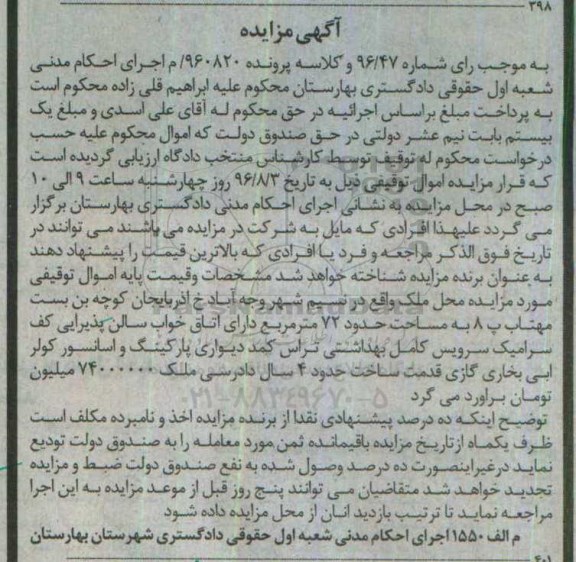 ۳۹۸
آگهی مزایده
به موجب رای شماره ۹۶/۴۷ و کلاسه پرونده ۹۶۰۸۲۰/ م اجرای احکام مدنی
شعبه اول حقوقی دادگستری بهارستان محکوم علیه ابراهیم قلی زاده محکوم است
به پرداخت مبلغ براساس اجرائیه در حق محکوم له آقای علی اسدی و مبلغ یک
بیستم بابت نیم عشر دولتی در حق صندوق دولت که اموال محکوم علیه حسب
درخواست محکوم له توقیف توسط کارشناس منتخب دادگاه ارزیابی گردیده است
که قرار مزایده اموال توقیفی ذیل به تاریخ ۹۶/۸/۳ روز چهارشنبه ساعت ۹ الی ۱۰
صبح در محل مزایده به نشانی اجرای احکام مدنی دادگستری بهارستان برگزار
می گردد علیهذا افرادی که مایل به شرکت در مزایده می باشند می توانند در
تاریخ فوق الذکر مراجعه و فرد یا افرادی که بالاترین قیمت را پیشنهاد دهند
به عنوان برنده مزایده شناخته خواهد شد مشخصات وقیمت پایه اموال توقیفی
مورد مزایده محل ملک واقع در نسیم شهر وجه آباد خ آذربایجان کوچه بن بست
مهتاب پ ۸ به مساحت حدود ۷۲ مترمربع دارای اتاق خواب سالن پذیرایی کف
سرامیک سرویس کامل بهداشتی تراس کمد دیواری پارکینگ و اسانسور کولر
ابی بخاری گازی قدمت ساخت حدود ۴ سال دادرسی ملک ۷۴۰۰۰۰۰۰ میلیون
تومان برآورد می گرد
توضیح اینکه ده درصد پیشنهادی نقدا از برنده مزایده اخذ و نامبرده مکلف است
ظرف یکماه از تاریخ مزایده باقیمانده ثمن مورد معامله را به صندوق دولت تودیع
نماید درغیراینصورت ده درصد وصول شده به نفع صندوق دولت ضبط و مزایده
تجدید خواهد شد متقاضیان می توانند پنج روز قبل از موعد مزایده به این اجرا
مراجعه نماید تا ترتیب بازدید انان از محل مزایده داده شود
م الف ۱۵۵۰ اجرای احکام مدنی شعبه اول حقوقی دادگستری شهرستان بهارستان
۴۰۱